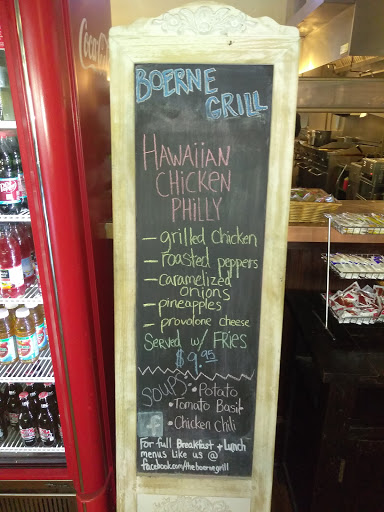 Coca-Cola
BOERNE
GRILL
HAWAIIAN
CHICKEN
PHILLY
- grilled chicken
- roasted peppers
- caramelized
onions
- pineapples
- provolone cheese
SERVED w/ FRIES
$9.95
SOUPS: • Potato
• Tomato Basil
• Chicken chili
For full Breakfast + Lunch
menus Like us @
facebook.com/theboernegrill